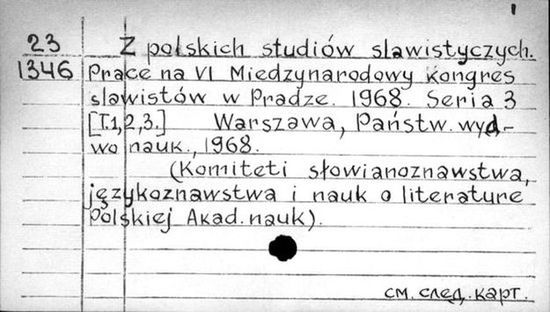 1
23 Z polskich studiów slawistyczych.
1346 Prace na VI Miedzynarodowy kongres
slawistów w Pradze. 1968. Seria 3
[T.1,2,3.] Warszawa, Państw. wyd-
wo nauk., 1968.
(Komiteti słowianoznawstwa,
językoznawstwa i nauk o literature
Polskiej Akad. nauk).
см. след. карт.